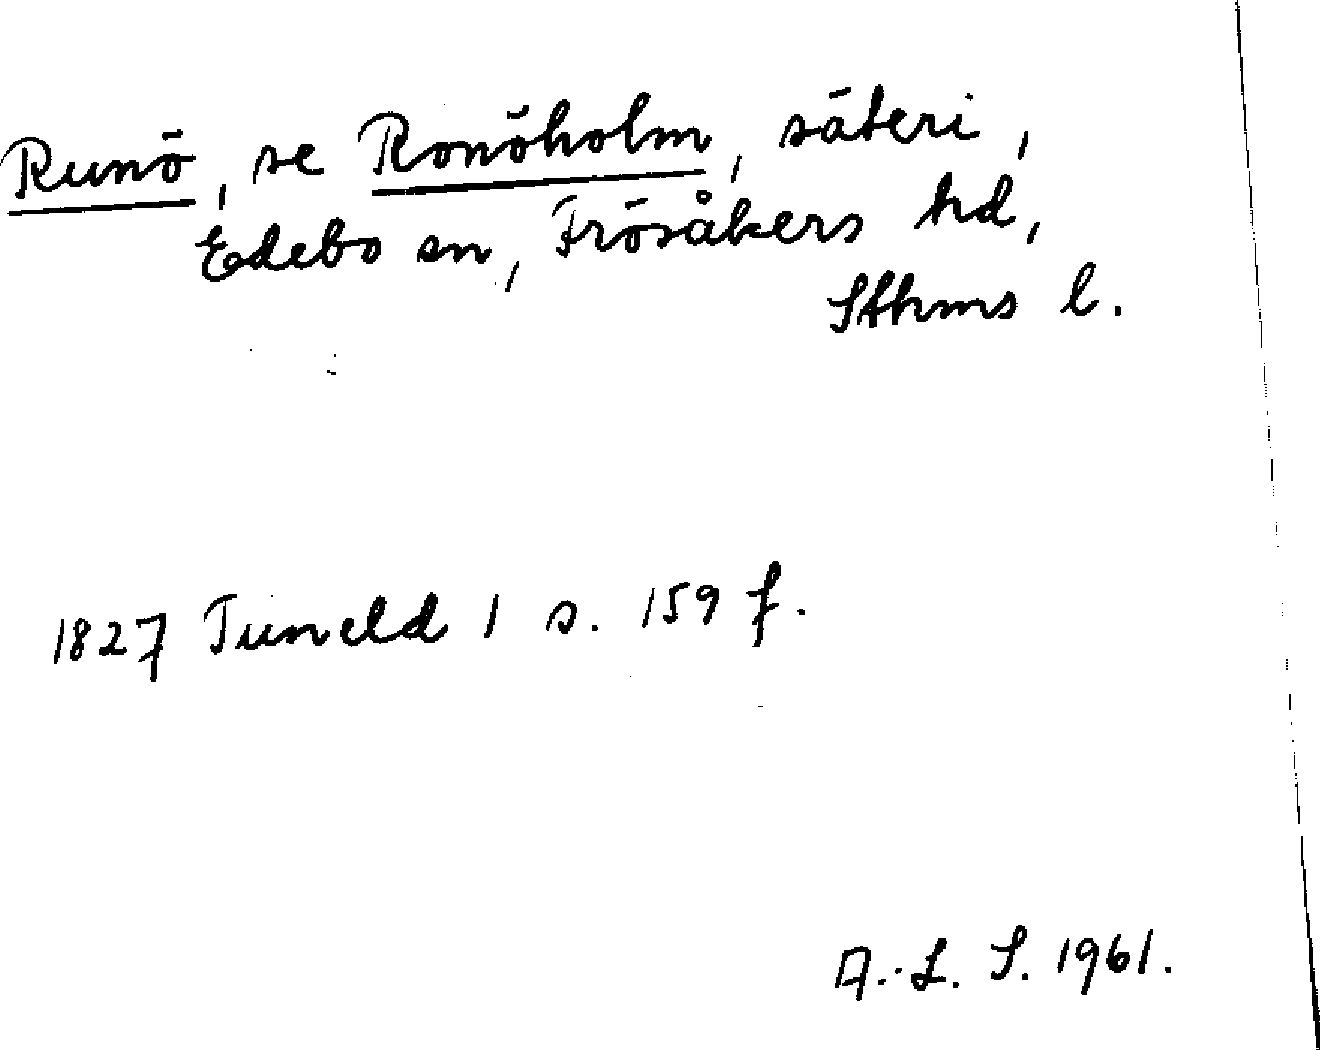 Runö, se Ronöholm, säteri,
Edebo sn, Frösåkers hd,
Sthms l.
1827 Tuneld 1 s. 159 f.
A.-L. S. 1961.